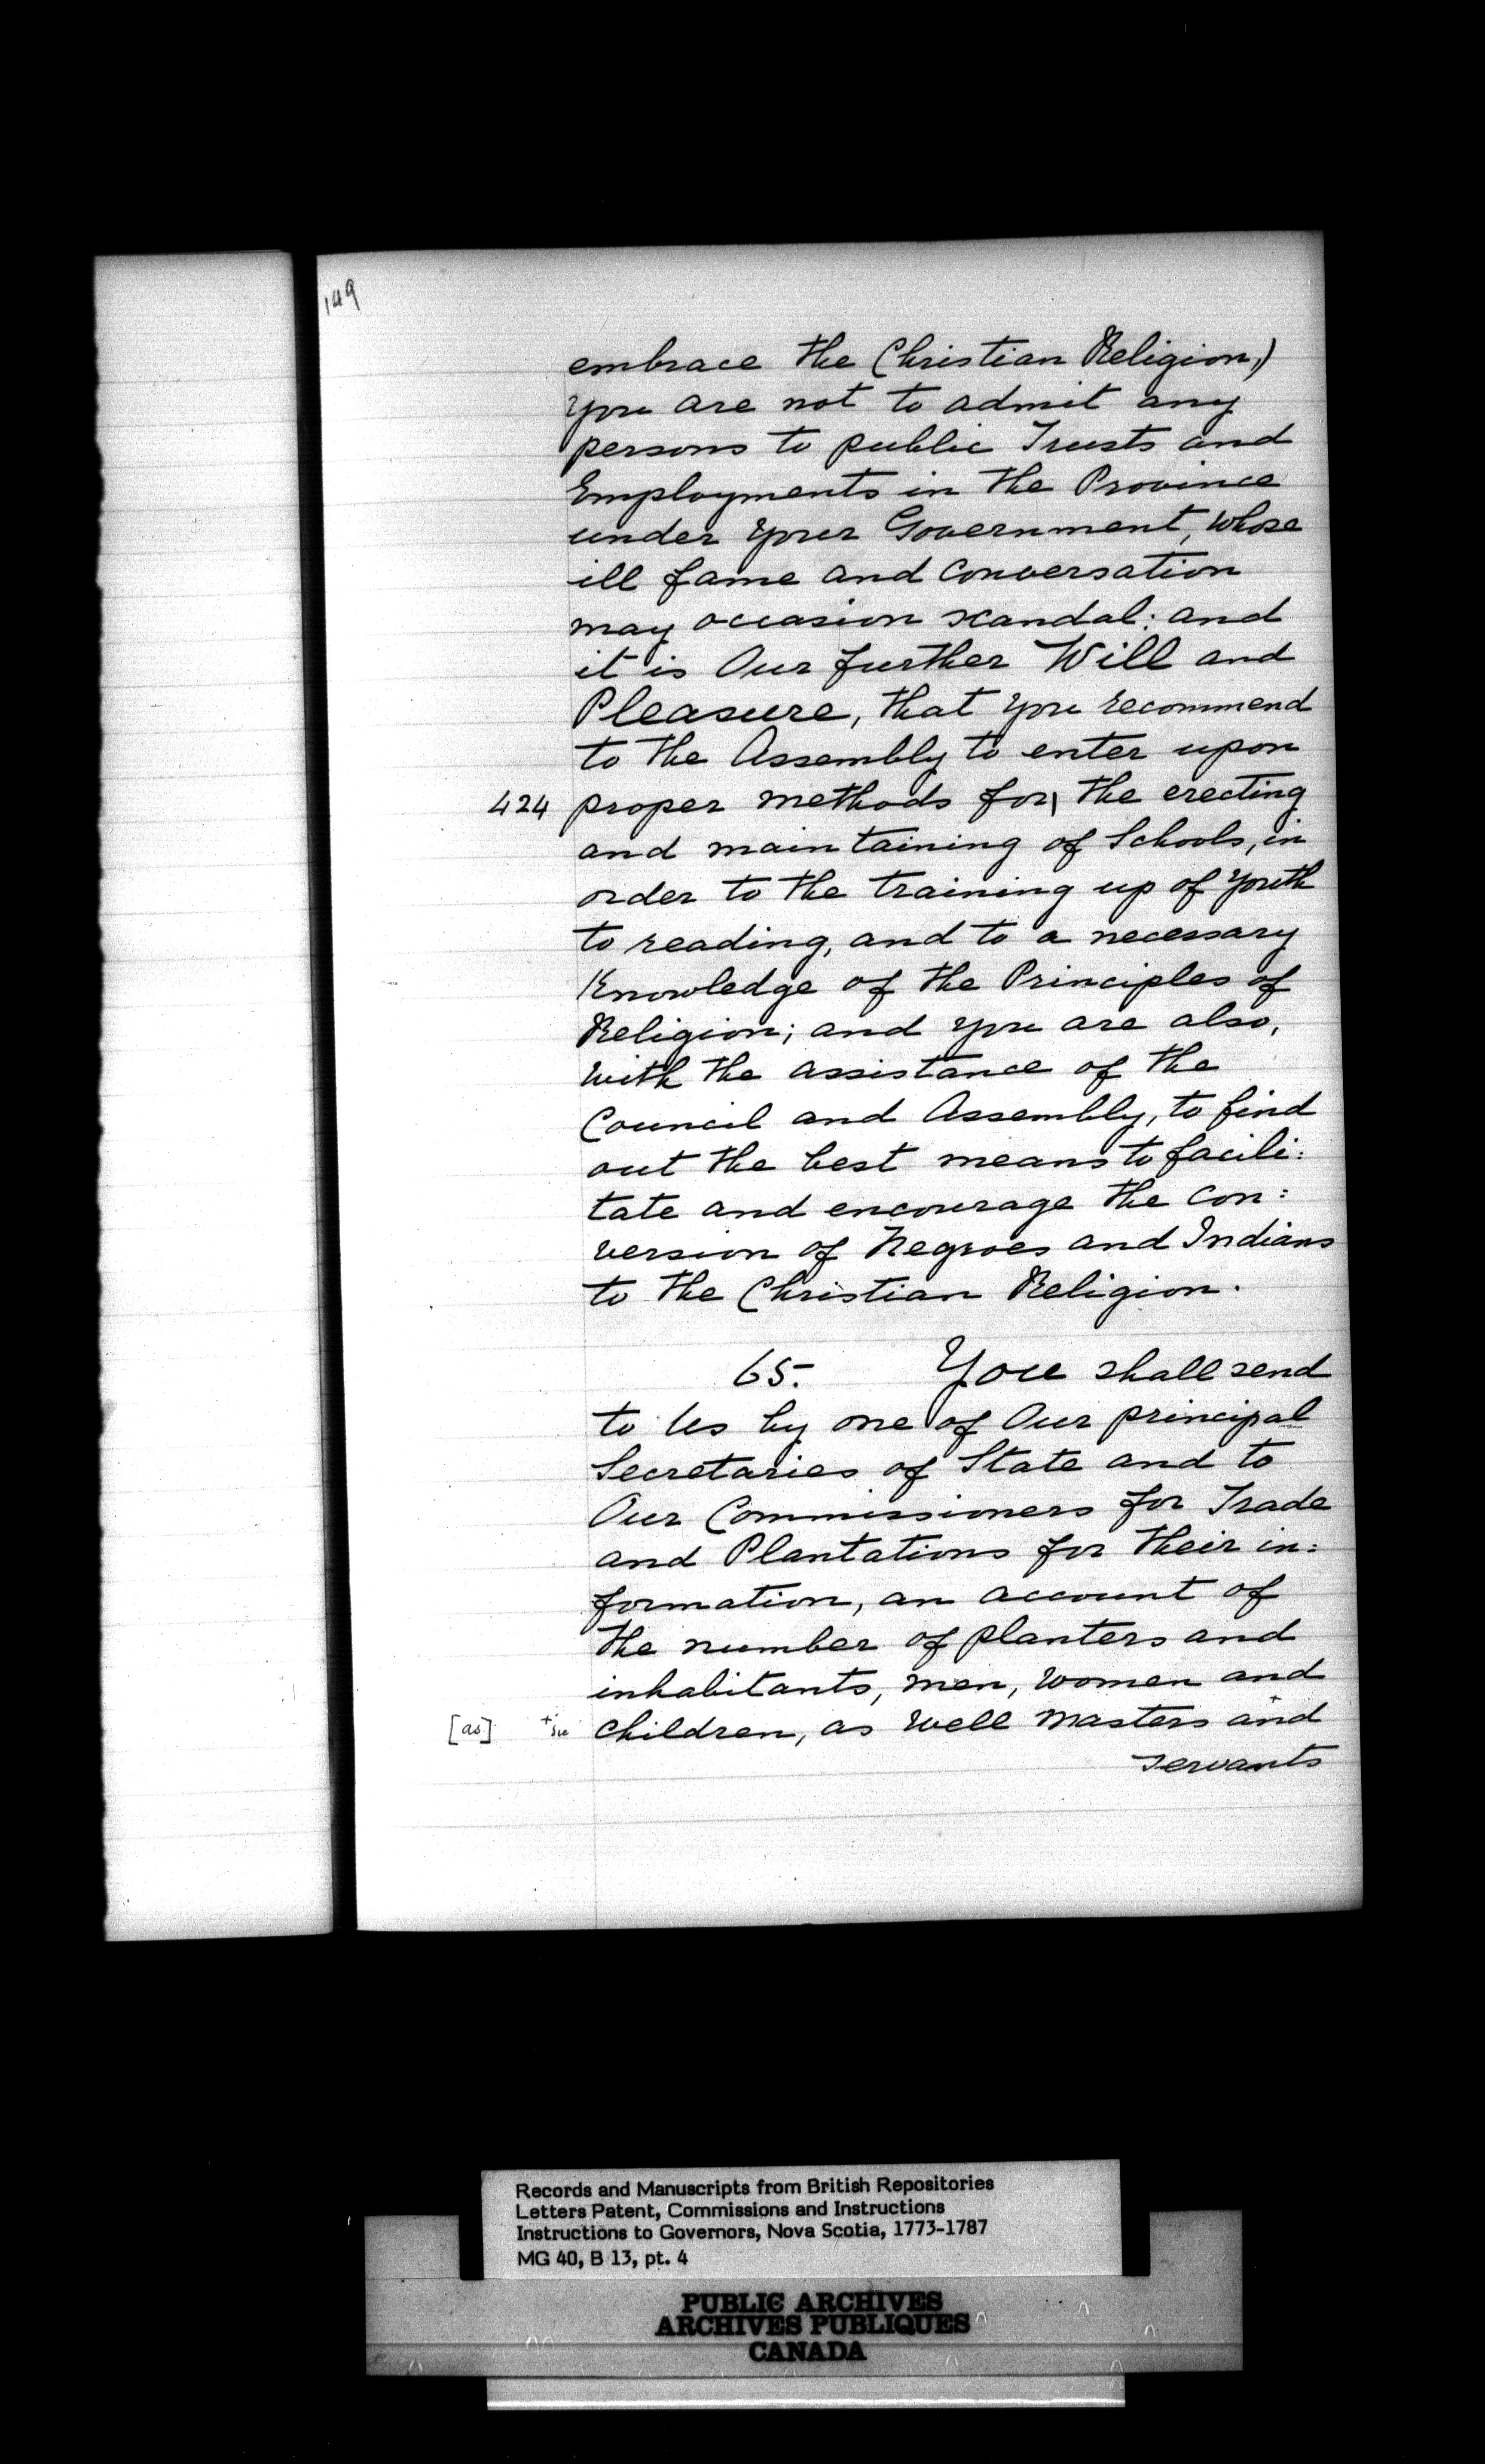 149
embrace the Christian Religion,)
you are not to admit any
persons to public Trusts and
Employments in the Province
under your Government, whose
ill fame and conversation
may occasion scandal: and
it is Our further Will and
Pleasure, that you recommend
to the Assembly to enter upon
424 proper methods for| the erecting
and maintaining of Schools, in
order to the training up of youth
to reading, and to a necessary
Knowledge of the Principles of
Religion; and you are also,
with the assistance of the
Council and Assembly, to find
out the best means to facili:
tate and encourage the con:
version of Negroes and Indians
to the Christian Religion.
65. You shall send
to Us by one of Our principal
Secretaries of State and to
Our Commissioners for Trade
and Plantations for their in:
formation, an account of
the number of planters and
inhabitants, men, women and
[as] + sic children, as well masters + and
servants
Records and Manuscripts from British Repositories
Letters Patent, Commissions and Instructions
Instructions to Governors, Nova Scotia, 1773-1787
MG 40, B 13, pt. 4
PUBLIC ARCHIVES
ARCHIVES PUBLIQUES
CANADA